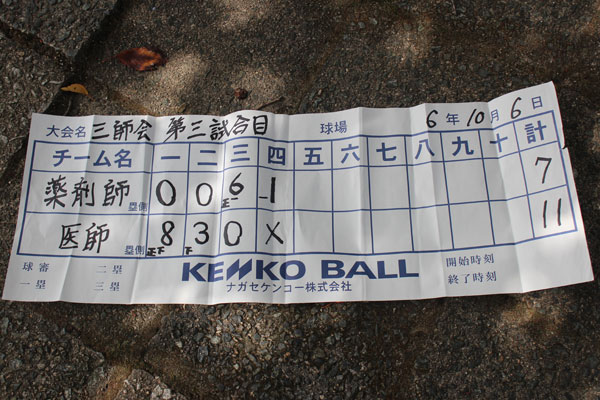 大会名 三師会 第三試合目 球場 6年10月6日
チーム名 一 二 三 四 五 六 七 八 九 十 計
薬剤師 塁側 0 0 6 1 7
医師 塁側 8 3 0 X 11
球審 二塁 KENKO BALL 開始時刻
一塁 三塁 ナガセケンコー株式会社 終了時刻